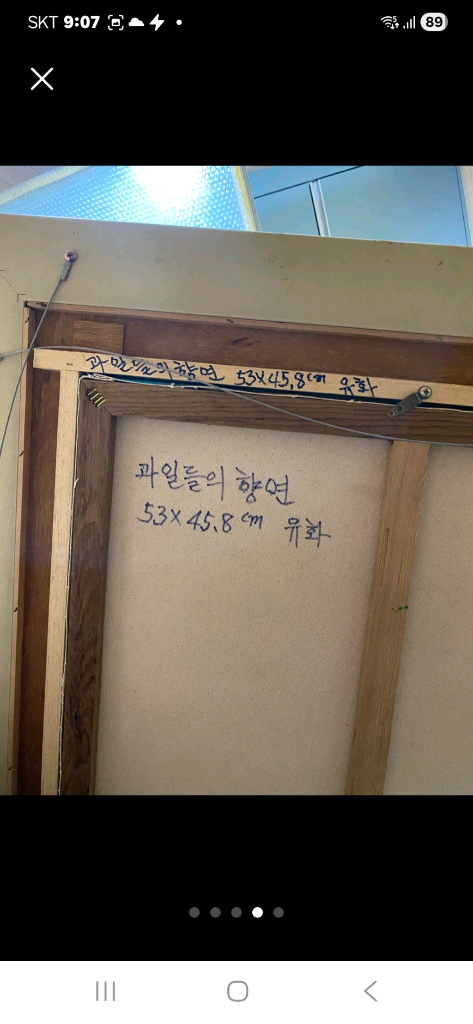 SKT 9:07
89
과일들의 향연 53x45.8cm 유화
과일들의 향연
53x45.8cm 유화